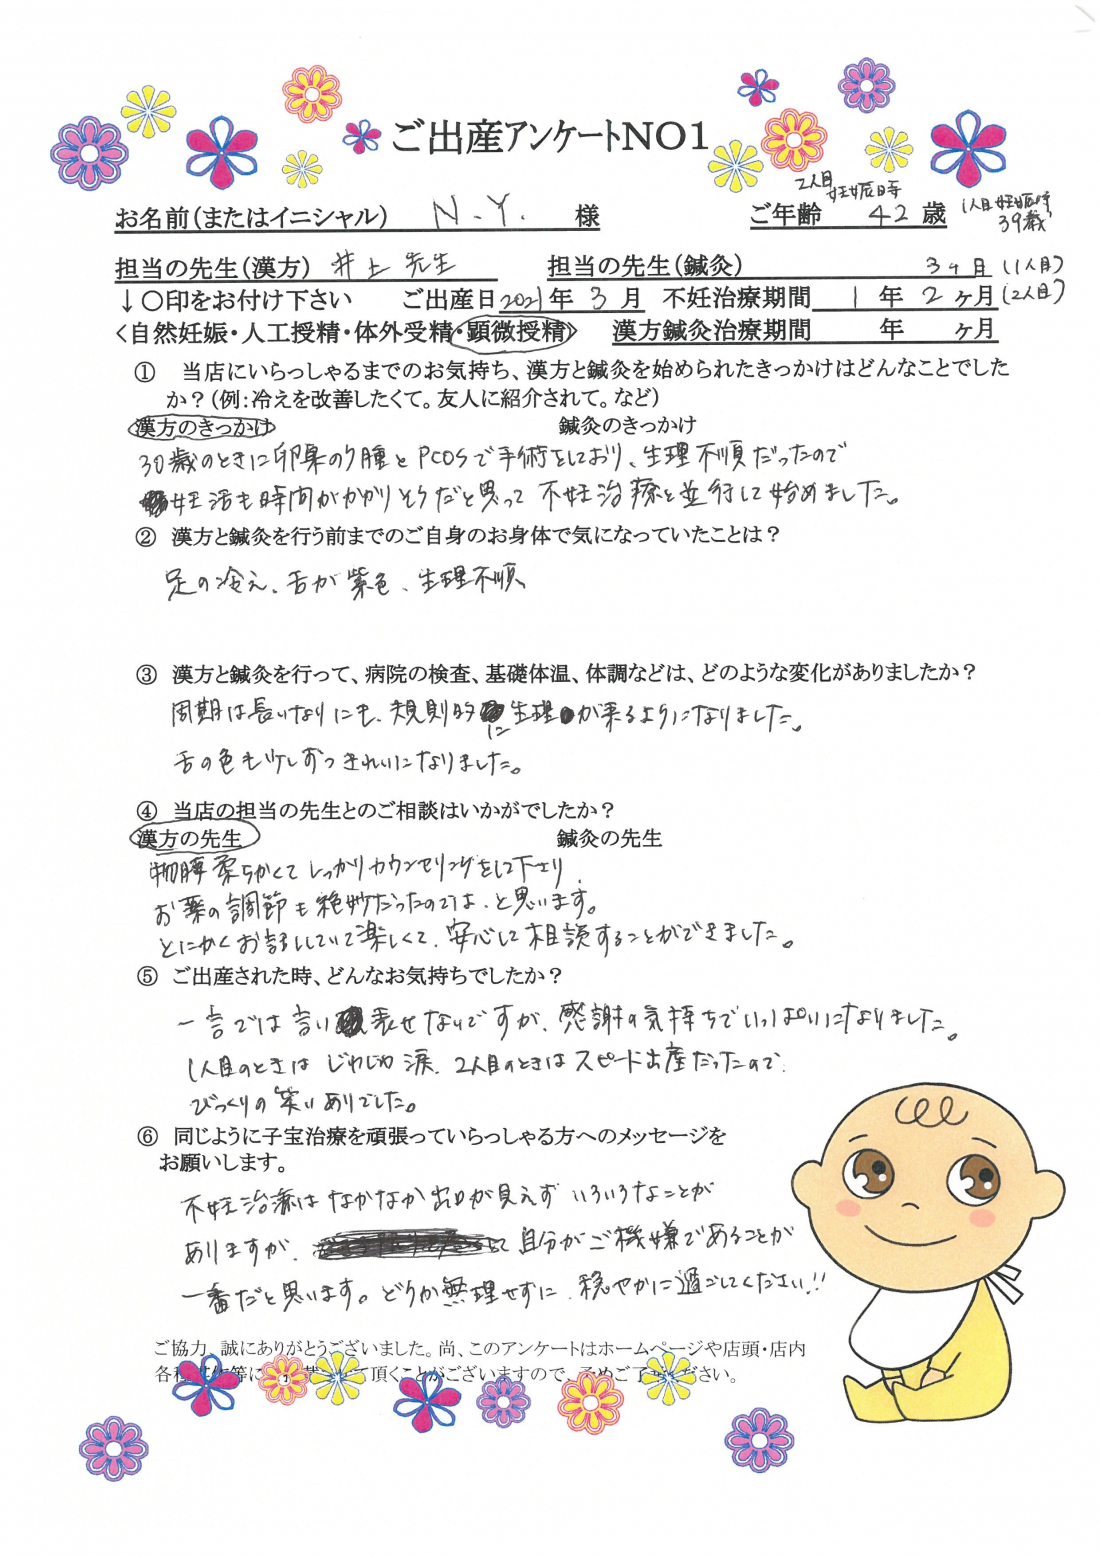 ご出産アンケートNO1
2人目
妊娠時
お名前(またはイニシャル) N.Y. 様 ご年齢 42 歳 1人目妊娠時
39歳
担当の先生(漢方) 井上先生 担当の先生(鍼灸) 3ヶ月(1人目)
↓○印をお付け下さい ご出産日2021年 3月 不妊治療期間 1年 2ヶ月(2人目)
<自然妊娠・人工授精・体外受精・顕微授精> 漢方鍼灸治療期間 年 ヶ月
① 当店にいらっしゃるまでのお気持ち、漢方と鍼灸を始められたきっかけはどんなことでした
か?(例:冷えを改善したくて。友人に紹介されて。など)
漢方のきっかけ 鍼灸のきっかけ
30歳のときに卵巣のう腫とPCOSで手術をしており、生理不順だったので
妊活も時間がかかりそうだと思って不妊治療と並行して始めました。
② 漢方と鍼灸を行う前までのご自身のお身体で気になっていたことは?
足の冷え、舌が紫色、生理不順
③ 漢方と鍼灸を行って、病院の検査、基礎体温、体調などは、どのような変化がありましたか?
周期は長いなりにも、規則的に生理が来るようになりました。
舌の色も少しずつきれいになりました。
④ 当店の担当の先生とのご相談はいかがでしたか?
漢方の先生 鍼灸の先生
物腰柔らかくてしっかりカウンセリングをして下さり、
お薬の調節も絶妙だったのでは、と思います。
とにかくお話ししていて楽しくて、安心して相談することができました。
⑤ ご出産された時、どんなお気持ちでしたか?
一言では言い表せないですが、感謝の気持ちでいっぱいになりました。
1人目のときはじわじわ涙、2人目のときはスピード出産だったので、
びっくりの笑いありでした。
⑥ 同じように子宝治療を頑張っていらっしゃる方へのメッセージを
お願いします。
不妊治療はなかなか出口が見えずいろいろなことが
ありますが、自分がご機嫌であることが
一番だと思います。どうか無理せずに、穏やかに過ごしてください!!
ご協力、誠にありがとうございました。尚、このアンケートはホームページや店頭・店内
各種 等に て頂くことがございますので、予めご了 ださい。